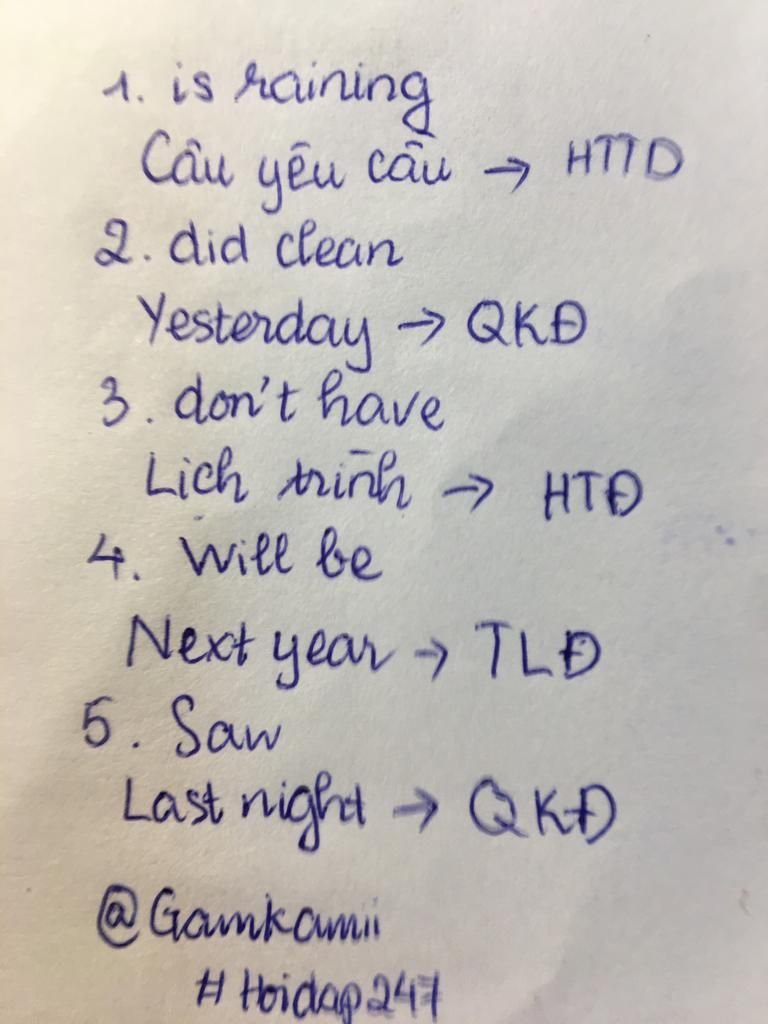 1. is raining
Câu yêu cầu → HTTD
2. did clean
Yesterday → QKĐ
3. don't have
Lịch trình → HTĐ
4. Will be
Next year → TLĐ
5. Saw
Last night → QKĐ
@Gamkamii
# Hoidap247